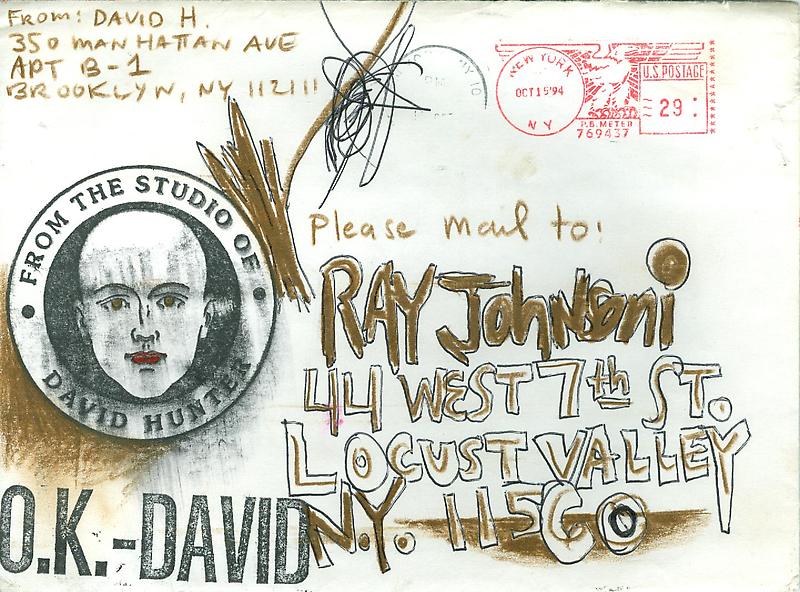 From: DAVID H.
350 MANHATTAN AVE
APT B-1
BROOKLYN, NY 112111
NEW YORK
OCT 15 '94
N Y
U.S. POSTAGE
29
P.B. METER
769437
FROM THE STUDIO OF
DAVID HUNTER
Please mail to:
RAY JOHNSONi
44 WEST 7th ST.
LOCUST VALLEY
N.Y. 11560
O.K.-DAVID